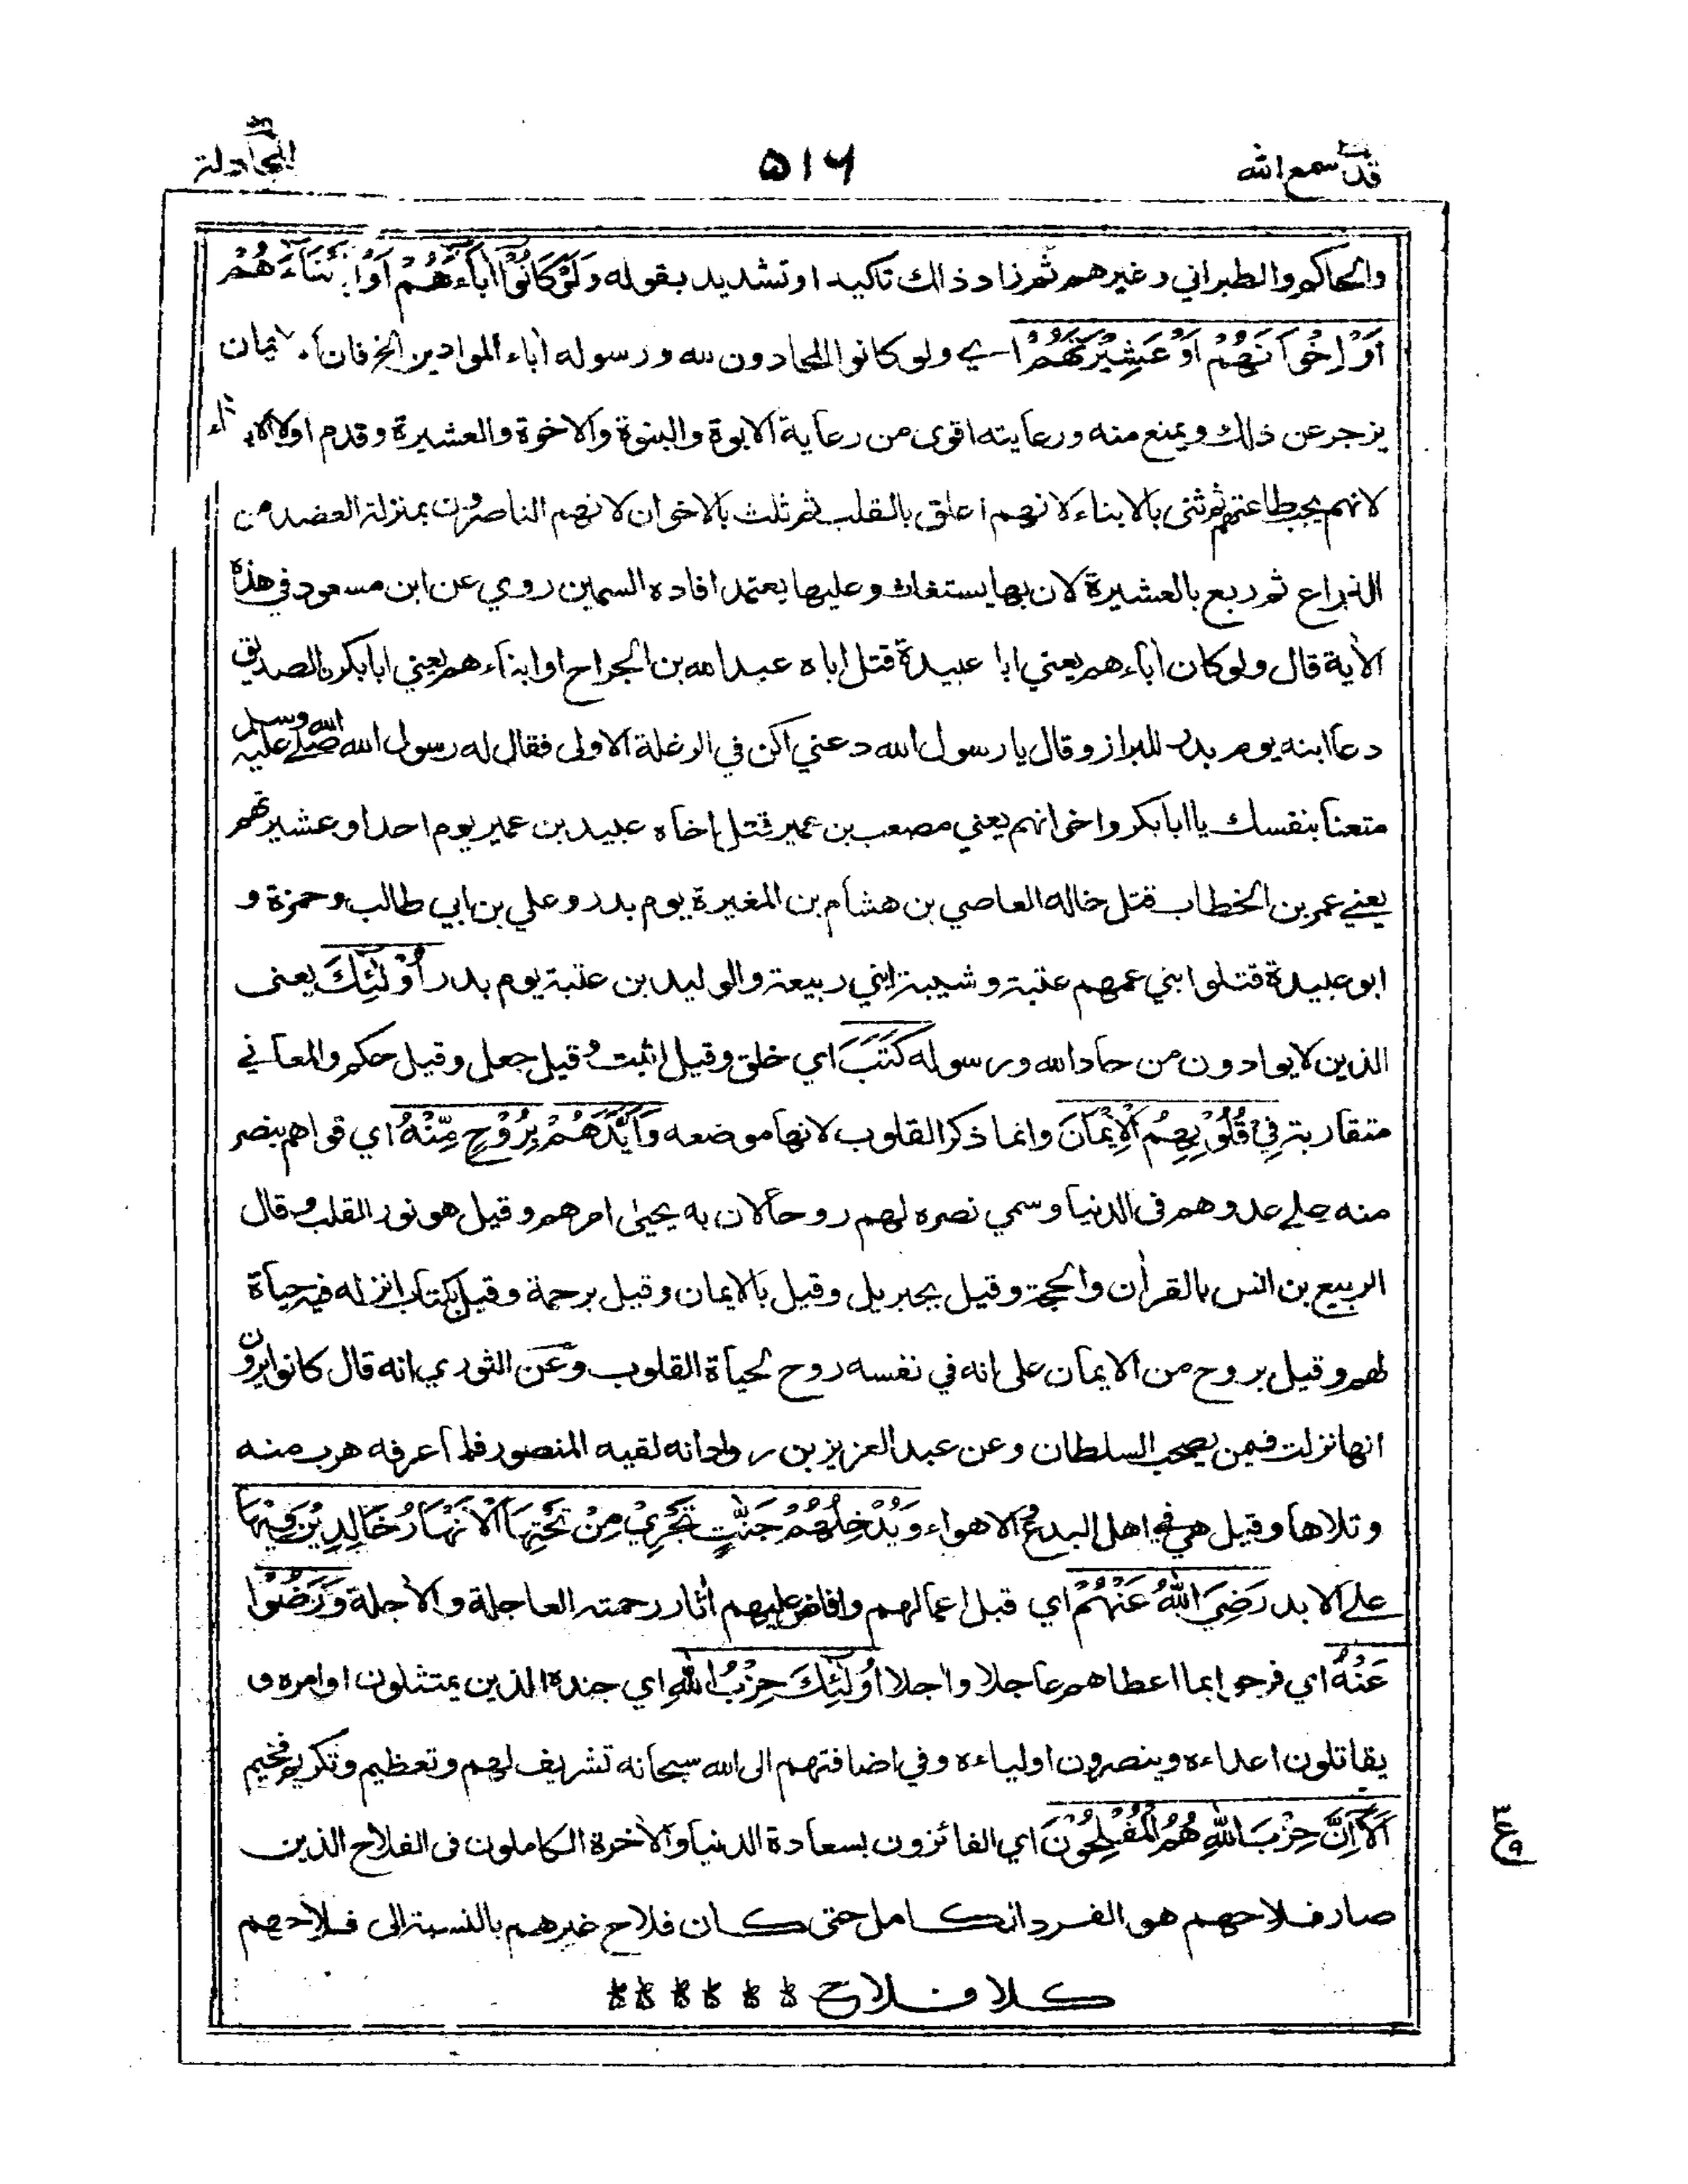 قد سمع الله
٥١٦
المجادلة
والحاكم والطبراني وغيرهم ثم زاد ذالك تاكيدا وتشديد بقوله وَلَوْ كَانُوْٓا اٰبَآءَهُمْ اَوْ اَبْنَآءَهُمْ
اَوْ اِخْوَانَهُمْ اَوْ عَشِيْرَتَهُمْ اي ولو كانوا المحادون لله ورسوله أباء الموادين الخ فان الايمان
يزجر عن ذلك ويمنع منه ورعايته اقوى من رعاية الابوة والبنوة والاخوة والعشيرة وقدم اولا الاباء
لانهم يجب طاعتهم ثم ثنى بالابناء لانهم اعلق بالقلب ثم ثلث بالاخوان لانهم الناصرون بمنزلة العضد من
الذراع ثم ربع بالعشيرة لان بها يستغاث وعليها يعتمد افاده السمين روي عن ابن مسعود في هذه
الأية قال ولو كان أباءهم يعني ابا عبيدة قتل اباه عبد الله بن الجراح او ابناءهم يعني ابا بكر الصديق
دعا ابنه يوم بدر للبراز وقال يا رسول الله دعني اكن في الرغلة الاولى فقال له رسول الله صلى الله عليه وسلم
متعنا بنفسك يا ابا بكر واخوانهم يعني مصعب بن عمير قتل اخاه عبيد بن عمير يوم احد او عشيرتهم
يعني عمر بن الخطاب قتل خاله العاصي بن هشام بن المغيرة يوم بدر وعلي بن ابي طالب وحمزة و
ابو عبيدة قتلوا بني عمهم عتبة وشيبة ابني ربيعة والوليد بن عتبة يوم بدر اُولٰٓئِكَ يعنى
الذين لا يوادون من حاد الله ورسوله كَتَبَ اي خلق وقيل اثبت وقيل جعل وقيل حكم والمعاني
متقاربة فِيْ قُلُوْبِهِمُ الْاِيْمَانَ وانما ذكر القلوب لانها موضعه وَاَيَّدَهُمْ بِرُوْحٍ مِّنْهُ اي قواهم بنصر
منه على عدوهم في الدنيا وسمي نصره لهم روحا لان به يحيى امرهم وقيل هو نور القلب وقال
الربيع بن انس بالقرأن والحجة وقيل بجبريل وقيل بالايمان وقيل برحمة وقيل بكتاب انزله فيه حياة
لهم وقيل بروح من الايمان على انه في نفسه روح لحياة القلوب وعن الثوري انه قال كانوا يرون
انها نزلت فيمن يصحب السلطان وعن عبد العزيز بن رواد انه لقيه المنصور فلما عرفه هرب منه
وتلاها وقيل هي في اهل البدع والاهواء وَيُدْخِلُهُمْ جَنّٰتٍ تَجْرِيْ مِنْ تَحْتِهَا الْاَنْهَارُ خَالِدِيْنَ فِيْهَا
على الابد رَضِيَ اللّٰهُ عَنْهُمْ اي قبل اعمالهم وافاض عليهم أثار رحمته العاجلة والأجلة وَرَضُوْا
عَنْهُ اي فرحوا بما اعطاهم عاجلا وأجلا اُولٰٓئِكَ حِزْبُ اللّٰهِ اي جنده الذين يمتثلون اوامره و
يقاتلون اعداءه وينصرون اولياءه وفي اضافتهم الى الله سبحانه تشريف لهم وتعظيم وتكريم وتفخيم
اَلَآ اِنَّ حِزْبَ اللّٰهِ هُمُ الْمُفْلِحُوْنَ اي الفائزون بسعادة الدنيا والأخرة الكاملون في الفلاح الذين
صار فلاحهم هو الفرد الكامل حتى كان فلاح غيرهم بالنسبة الى فلاحهم
كلا فلاح